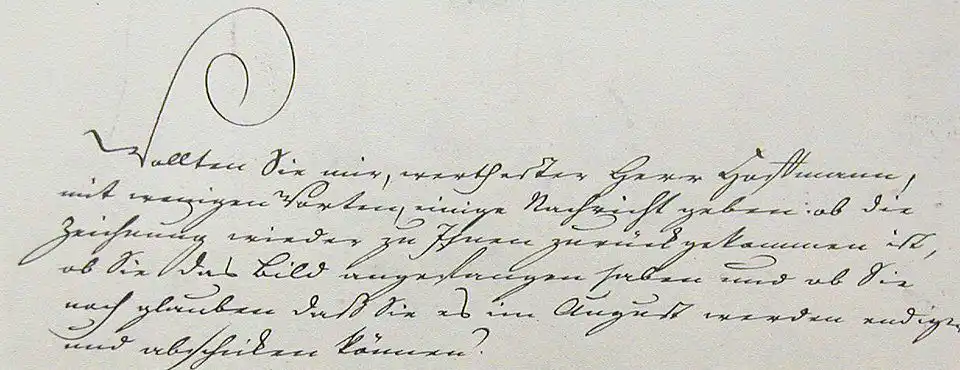 Wollten Sie mir, werthester Herr Hoffmann,
mit wenigen Worten, einige Nachricht geben: ob die
Zeichnung wieder zu Ihnen zurückgekommen ist,
ob Sie das Bild angefangen haben und ob Sie
noch glauben daß Sie es im August werden endigen
und abschicken können?